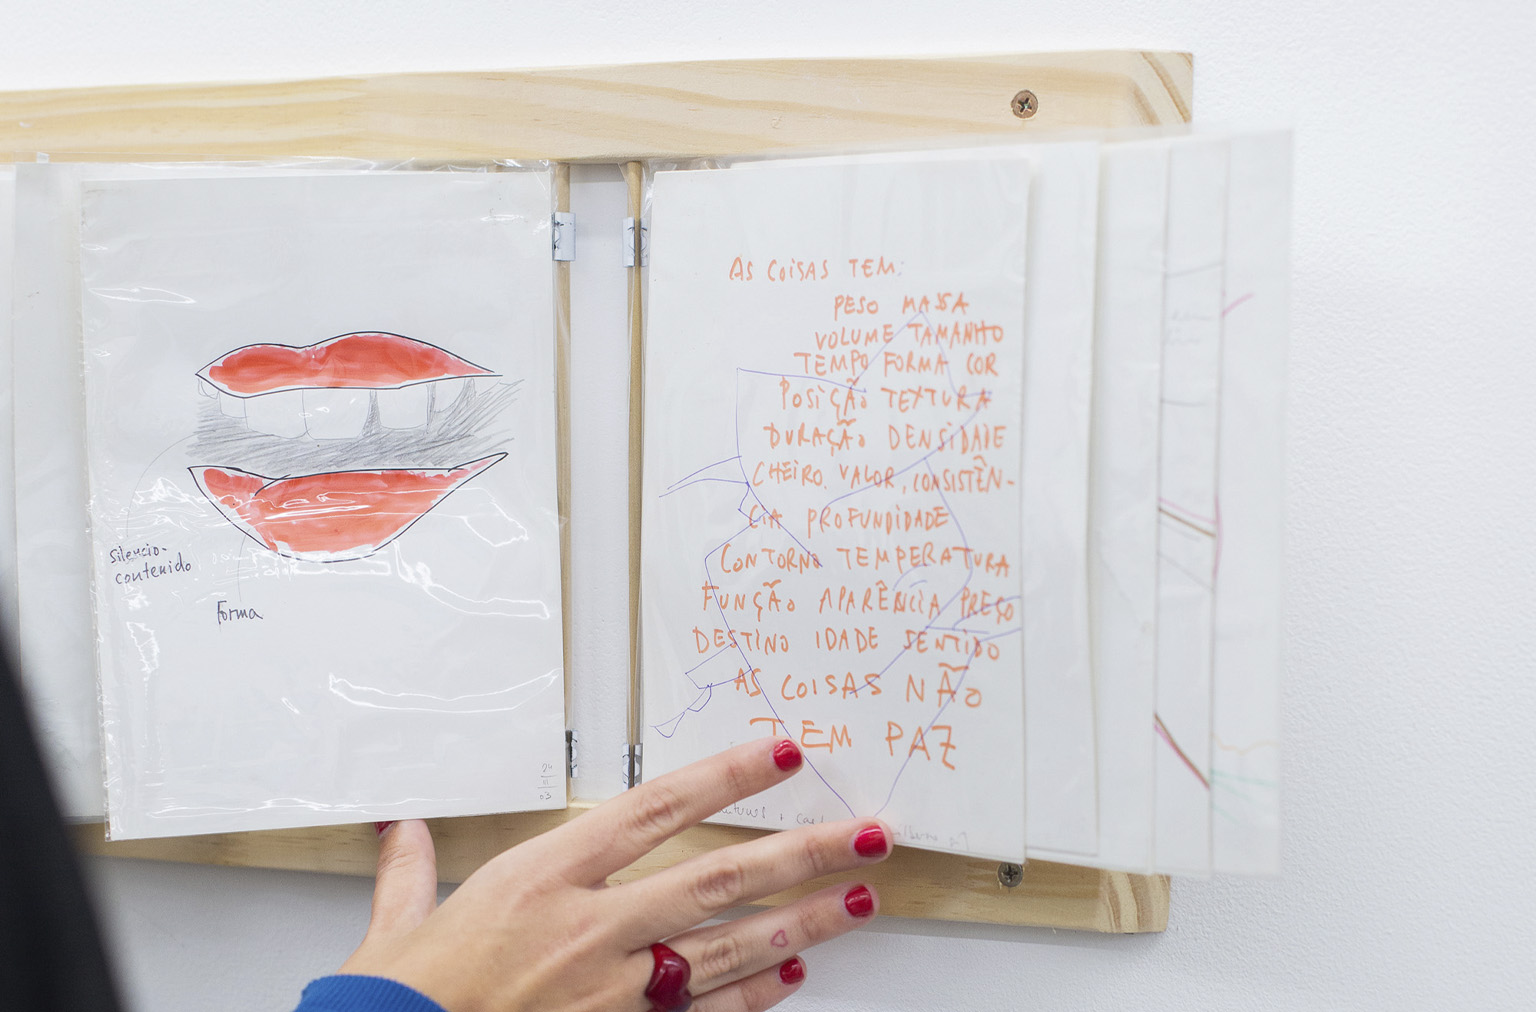 silencio-
contenido
Forma
24
11
03
AS COISAS TEM:
PESO MASSA
VOLUME TAMANHO
TEMPO FORMA COR
POSIÇÃO TEXTURA
DURAÇÃO DENSIDADE
CHEIRO, VALOR, CONSISTÊN-
CIA PROFUNDIDADE
CONTORNO TEMPERATURA
FUNÇÃO APARÊNCIA PREÇO
DESTINO IDADE SENTIDO
AS COISAS NÃO
TEM PAZ